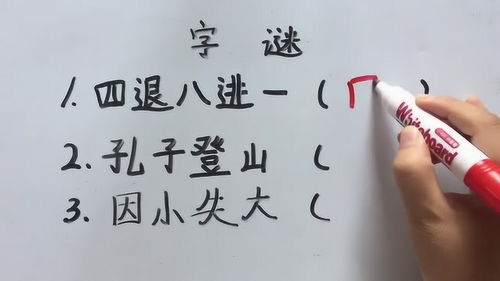 字谜
1.四退八进一(冂)
2.孔子登山(
3.因小失大(
Whiteboard